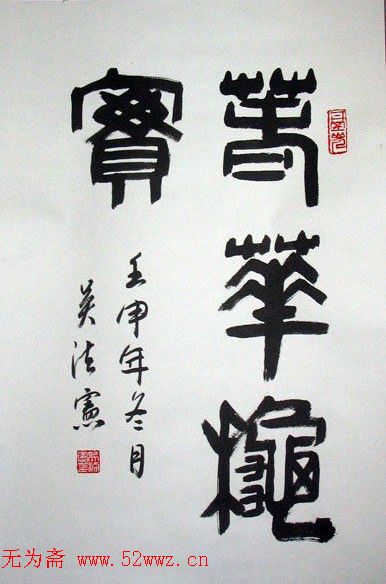 春華龝
實
壬申年冬月
吴法憲
无为斋 www.52wwz.cn